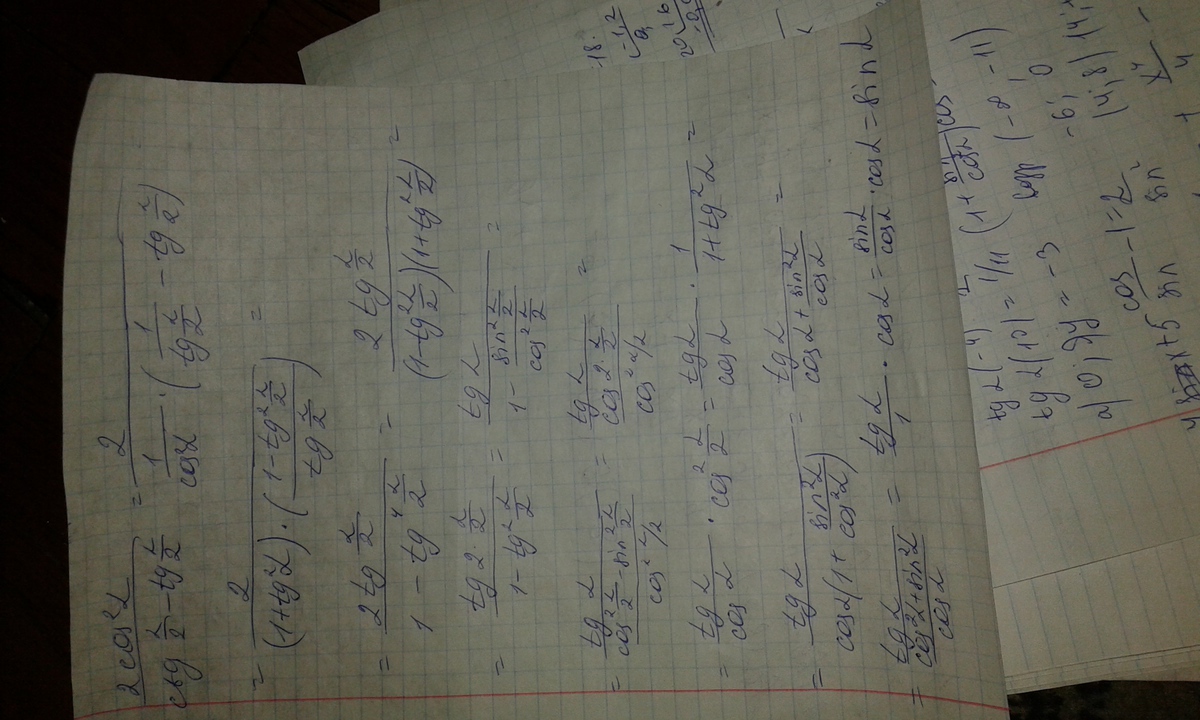 2cos²α / (ctg α/2 − tg α/2) = 2 / (1/cos²α · (1/tg α/2 − tg α/2))
= 2 / ((1+tg²α) · ((1−tg² α/2) / tg α/2)) =
= 2tg α/2 / (1 − tg⁴ α/2) = 2 tg α/2 / ((1−tg² α/2)(1+tg² α/2)) =
= tg 2 α/2 / (1−tg² α/2) = tg α / (1 − sin² α/2 / cos² α/2) =
= tg α / ((cos² α/2 − sin² α/2) / cos² α/2) = tg α / (cos 2 α/2 / cos² α/2) =
= tg α / cos α · cos² α/2 = tg α / cos α · 1 / (1+tg² α) =
= tg α / (cos α(1 + sin²α / cos²α)) = tg α / (cos α + sin²α / cos α) =
= tg α / ((cos²α + sin²α) / cos α) = tg α / 1 · cos α = sin α / cos α · cos α = sin α
18.
tg 2(-4)
tg 2(10) = 1/11
= -3
(-8 -11)
-6; 0
cos −1=2
x+5 sin
sin²
x⁴
4